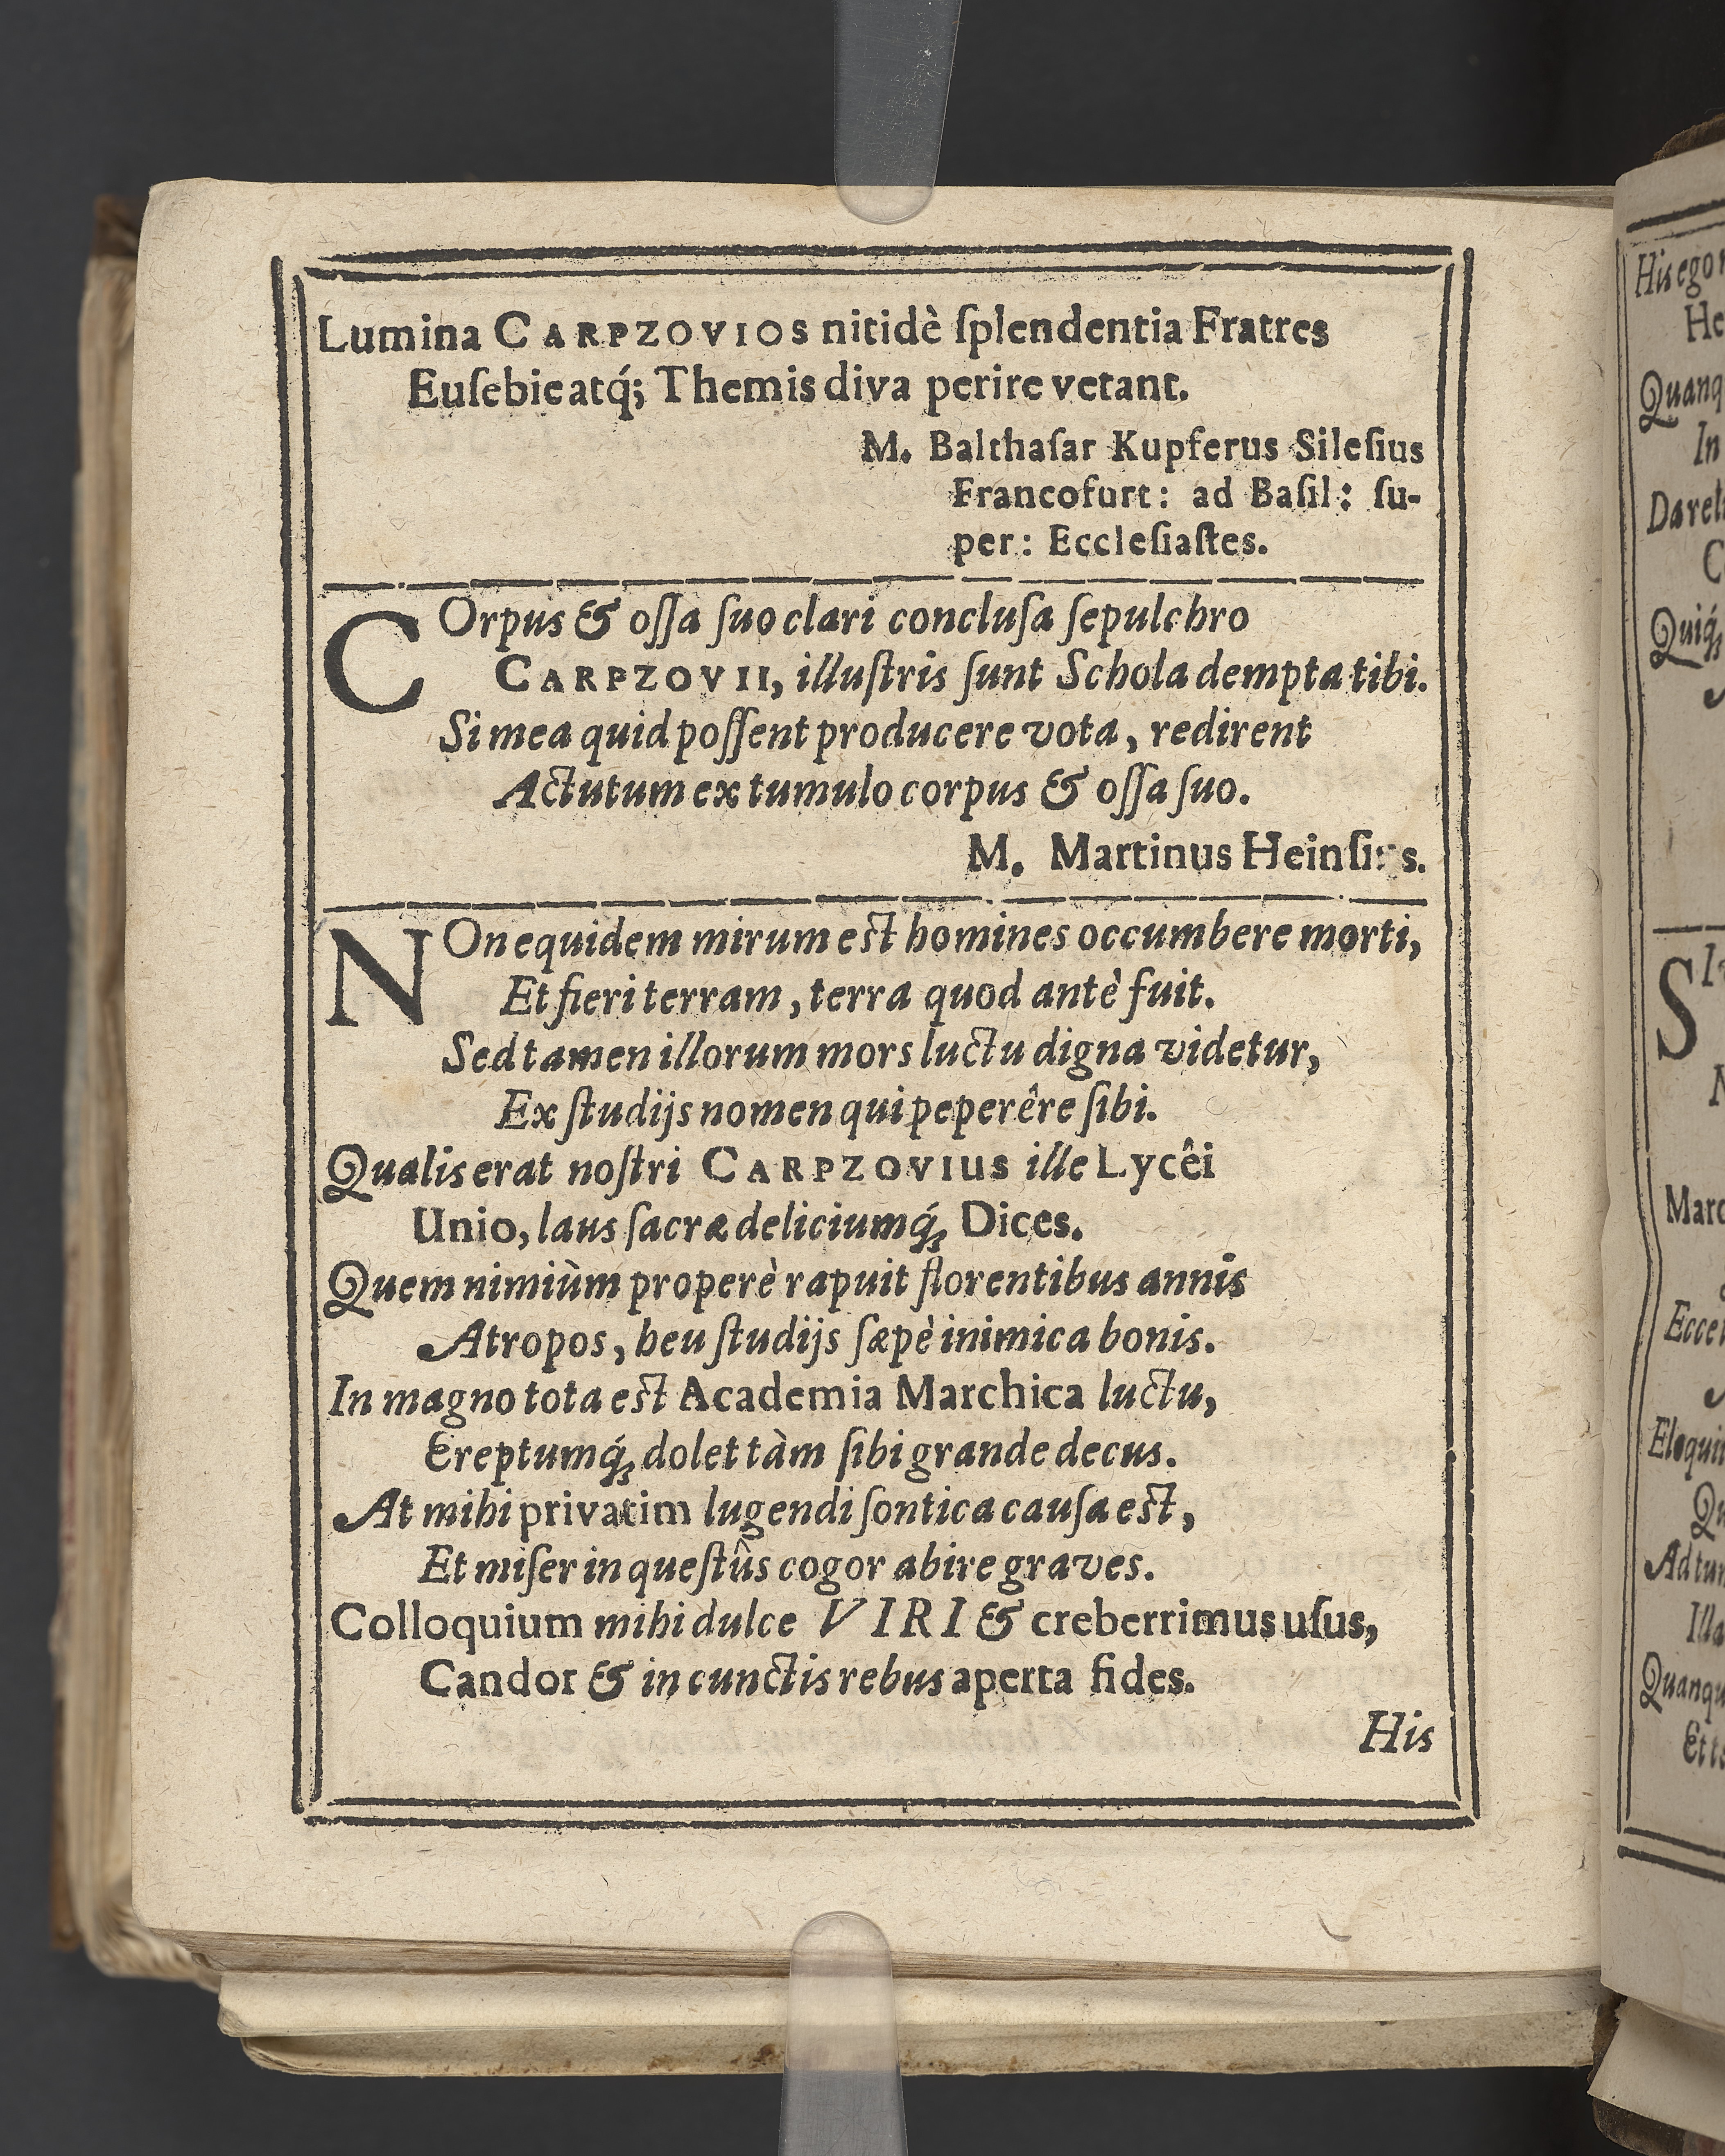 Lumina CARPZOVIOS nitidè ſplendentia Fratres
Euſebie atq́; Themis diva perire vetant.
M. Balthaſar Kupferus Sileſius
Francofurt: ad Baſil: ſu-
per: Eccleſiaſtes.
COrpus & oſſa ſuo clari concluſa ſepulchro
CARPZOVII, illuſtris ſunt Schola dempta tibi.
Si mea quid poſſent producere vota, redirent
Actutum ex tumulo corpus & oſſa ſuo.
M. Martinus
NOn equidem mirum eſt homines occumbere morti,
Et fieri terram, terra quod antè fuit.
Sed tamen illorum mors luctu digna videtur,
Ex ſtudijs nomen qui peperêre ſibi.
Qualis erat noſtri CARPZOVIUS ille Lycêi
Unio, laus ſacræ deliciumq́; Dices.
Quem nimiùm properè rapuit florentibus annis
Atropos, heu ſtudijs ſæpè inimica bonis.
In magno tota eſt Academia Marchica luctu,
Ereptumq́; dolet tàm ſibi grande decus.
At mihi privatim lugendi ſontica cauſa eſt,
Et miſer in queſtûs cogor abire graves.
Colloquium mihi dulce VIRI & creberrimus uſus,
Candor & in cunctis rebus aperta fides.
His
His ego
He
In
S
Marc
Illa